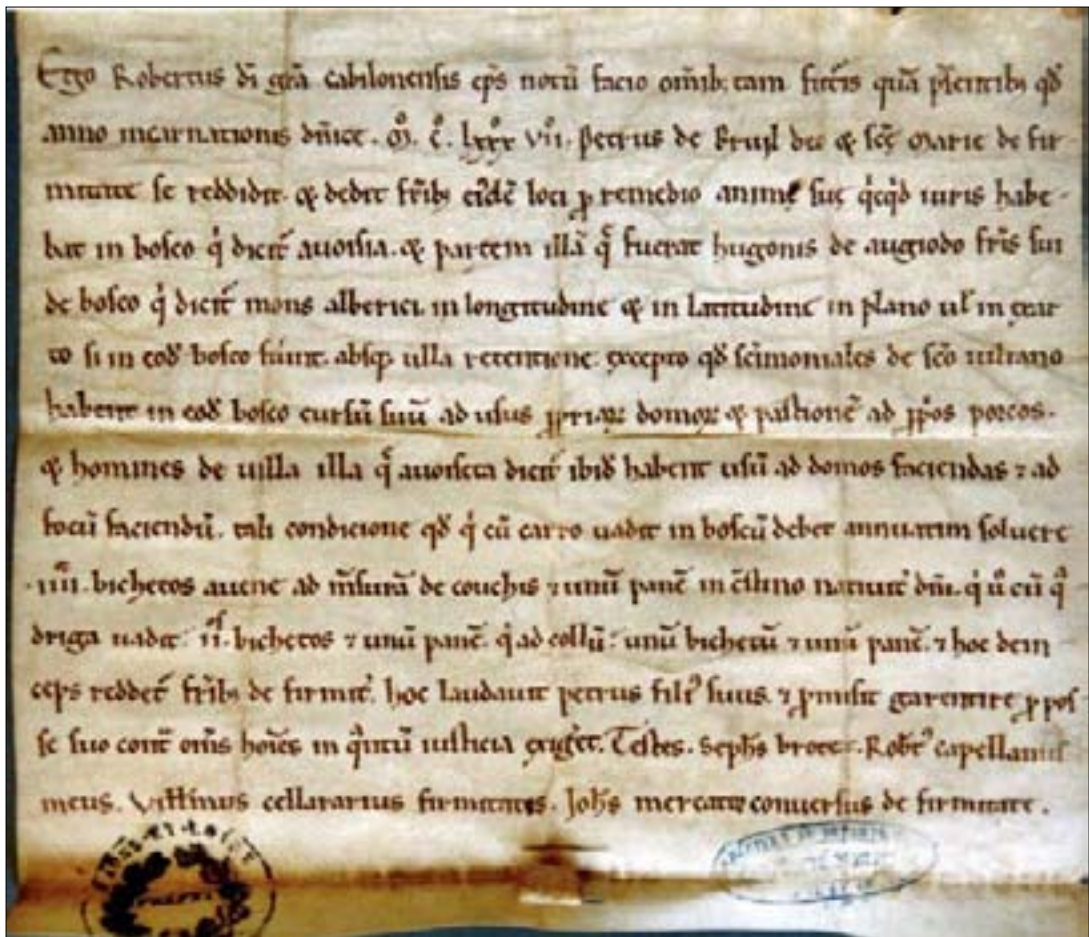 Ego Robertus dī grā cabilonensis ep̄s notū facio om̄ib; tam fut̄is quā p̄sentib; qd̄
anno incarnationis dn̄ice . M̊ . C̊ . Lxxx̊ vii . petrus de Bruil deo & sc̄e Marie de fir
mitate se reddidit . & dedit fr̄ib; eidē loci p̱ remedio animę suę q̇cq̇d iuris habe
bat in bosco q̇ dicit̄ avoisia . & partem illā q̄ fuerat hugonis de augiodo fr̄is sui
de bosco q̇ dicit̄ mons alberici in longitudine & in latitudine in plano ul̄ in exar
to si in eod̄ bosco fūint . absq; ulla retentione . excepto qd̄ sc̄imoniales de sc̄o iuliano
habent in eod̄ bosco cursū suū ad usus p̱priaꝝ domoꝝ & pastionē ad p̱p̱os porcos .
& homines de uilla illa q̄ avoiseta dicit̄ ibid̄ habent usū ad domos faciendas ⁊ ad
focū faciendū . tali condicione qd̄ q̇ cū carro uadit in boscū debet annuatim soluere
. iiii . bichetos auene ad m̄surā de couchis ⁊ unū panē in c̄stino natiuit̄ dn̄i . q̇ ū cū q̄
driga uadit . ii . bichetos ⁊ unū panē . q̇ ad collū : unū bichetū ⁊ unū panē . ⁊ hoc dein
ceps reddet̄ fr̄ib; de firmit̄ . hoc laudauit petrus fili᾿ suus . ⁊ p̱misit garentire p̱ pos
se suo cont̄ om̄s hōies in q̇ntū iusticia exiget̄ . Testes . Seph̄s brocet . Rob̄t᾿ capellanus
meus . Vill̄nus cellararius firmitatis . Joh̄s mercator conuersus de firmitate .